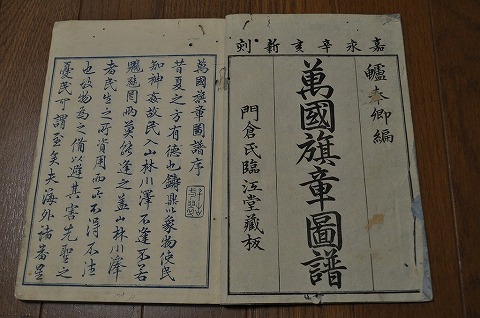 嘉永辛亥新刻
鱸奉卿編
萬國旗章圖譜
門倉氏臨江堂藏板
萬國旗章圖譜序
昔夏之方有德也鑄鼎以象物使民
知神姦故民入山林川澤不逢不若
魑魅罔兩莫能逢之蓋山林川澤
者民生之所資用而不得不法
也故物為之備以避其害先聖之
憂民可謂至矣夫海外諸蕃